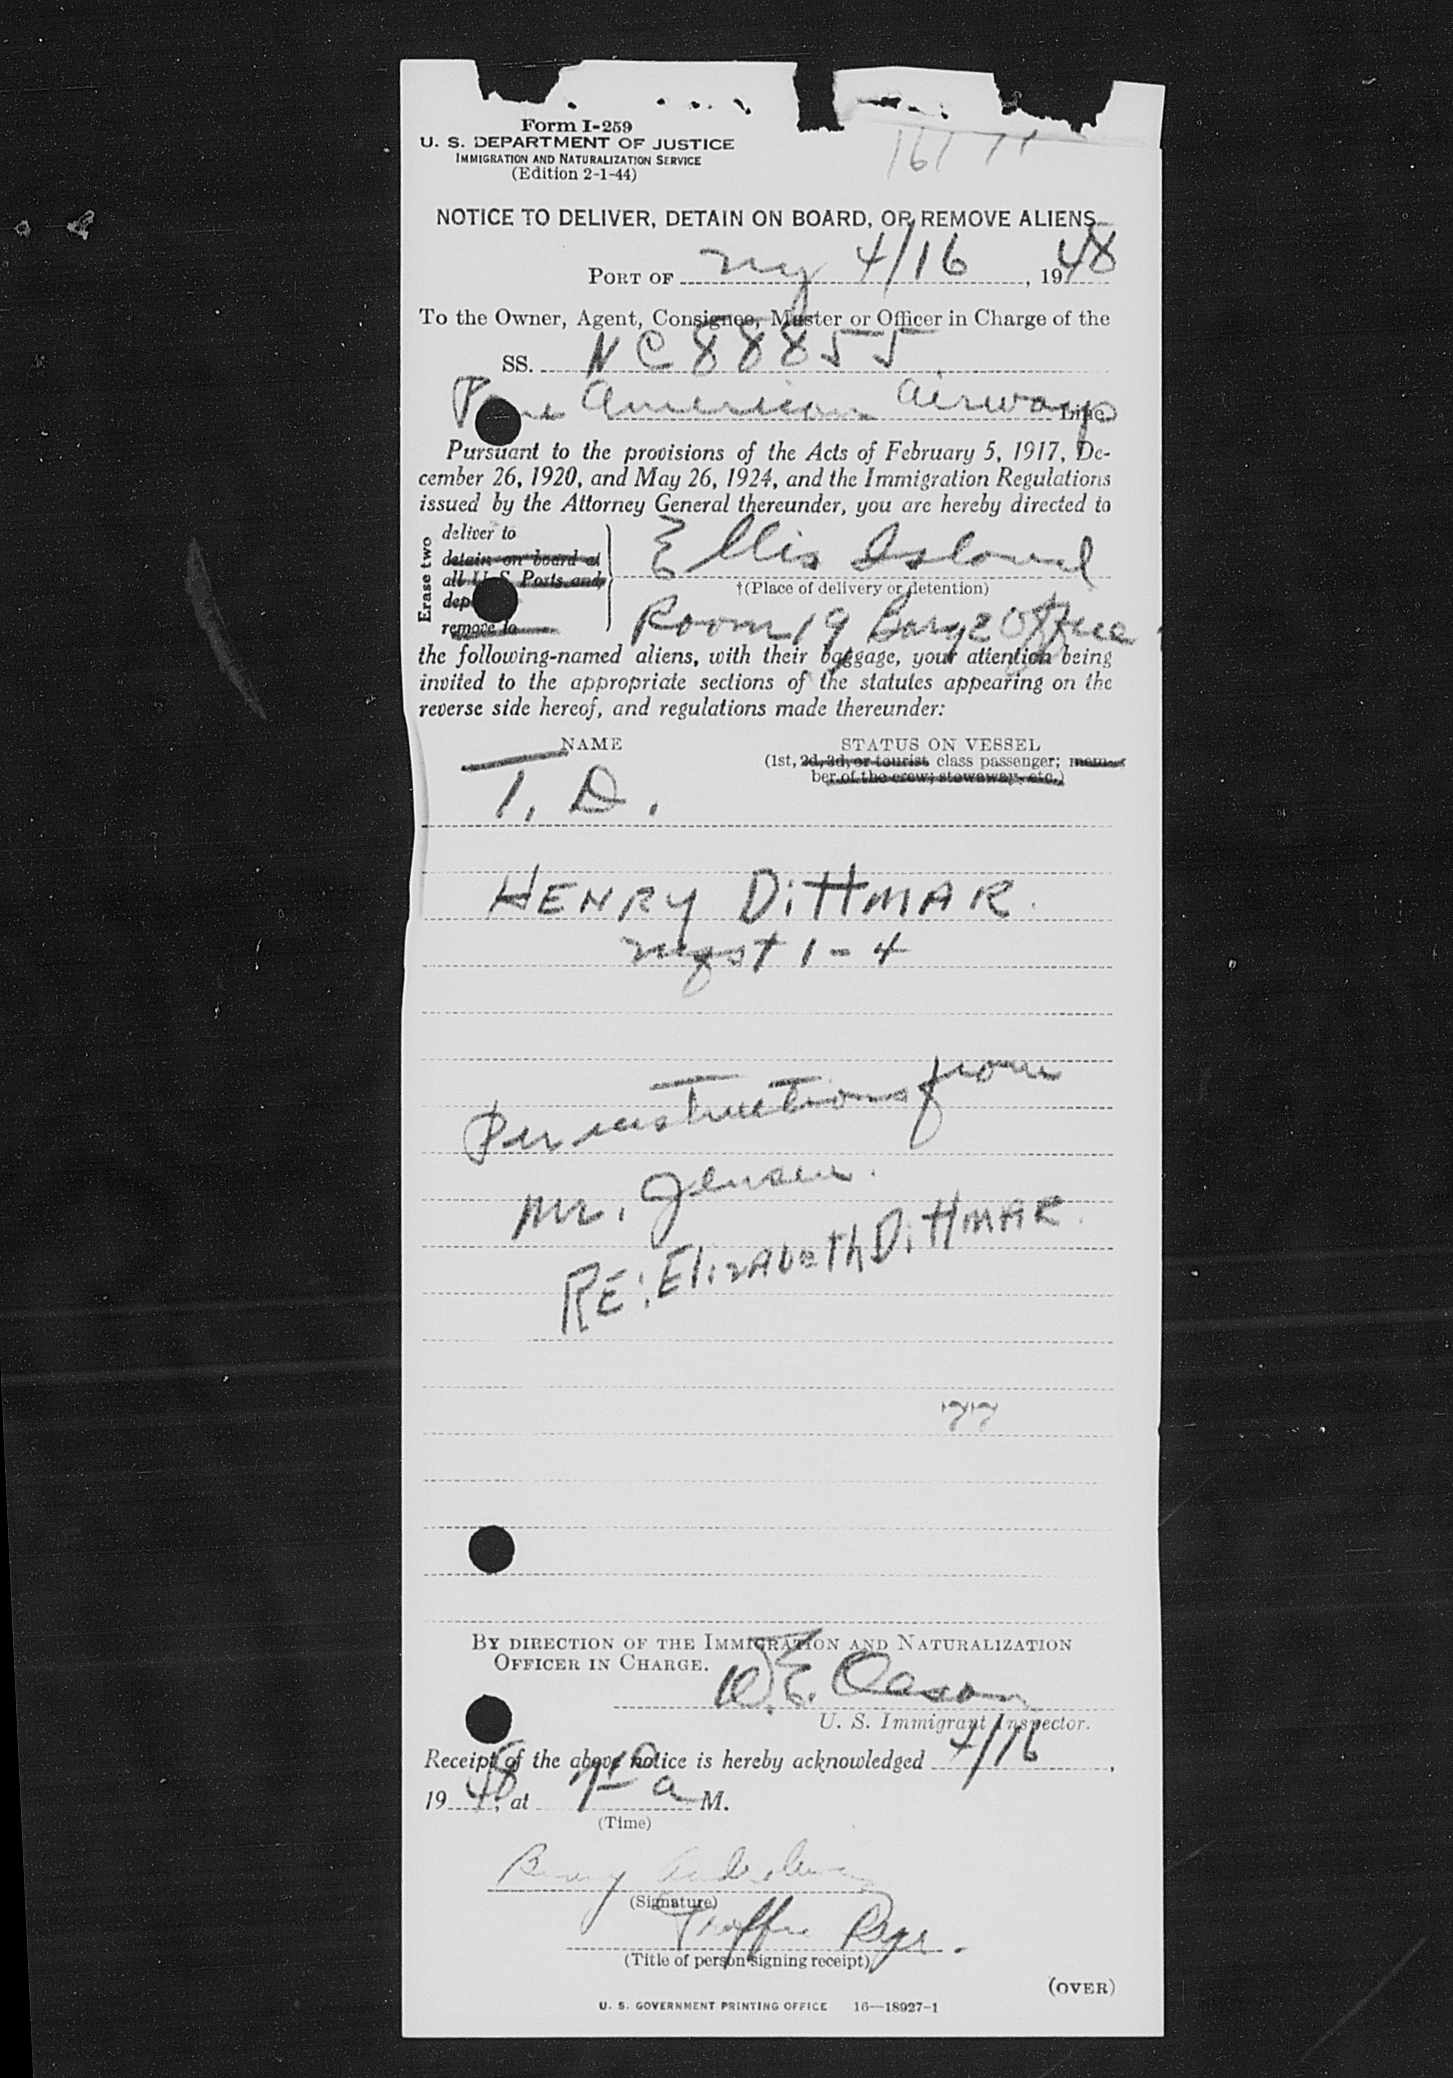 Form I-259
U. S. DEPARTMENT OF JUSTICE
IMMIGRATION AND NATURALIZATION SERVICE
(Edition 2-1-44)
NOTICE TO DELIVER, DETAIN ON BOARD, OR REMOVE ALIENS
PORT OF NY 4/16, 1948
To the Owner, Agent, Consignee, Master or Officer in Charge of the
SS. NC 88855
Pan American Airways Line.
Pursuant to the provisions of the Acts of February 5, 1917, De-
cember 26, 1920, and May 26, 1924, and the Immigration Regulations
issued by the Attorney General thereunder, you are hereby directed to
Erase two
deliver to
detain on board at
all U. S. Ports and
remove to
Ellis Island
†(Place of delivery or detention)
Room 19 Barge Office
the following-named aliens, with their baggage, your attention being
invited to the appropriate sections of the statutes appearing on the
reverse side hereof, and regulations made thereunder:
NAME STATUS ON VESSEL
(1st, 2d, 3d, or tourist class passenger; mem-
ber of the crew; stowaway, etc.)
T. D.
HENRY DiTTMAR.
1-4
Per instructions from
Mr. Jensen.
RE: ElizAbeTh DiTTMAR.
BY DIRECTION OF THE IMMIGRATION AND NATURALIZATION
OFFICER IN CHARGE.
U. S. Immigrant Inspector.
Receipt of the above notice is hereby acknowledged 4/16,
1948, at a M.
(Time)
(Signature)
Traffic
(Title of person signing receipt)
(OVER)
U. S. GOVERNMENT PRINTING OFFICE 16—18927-1